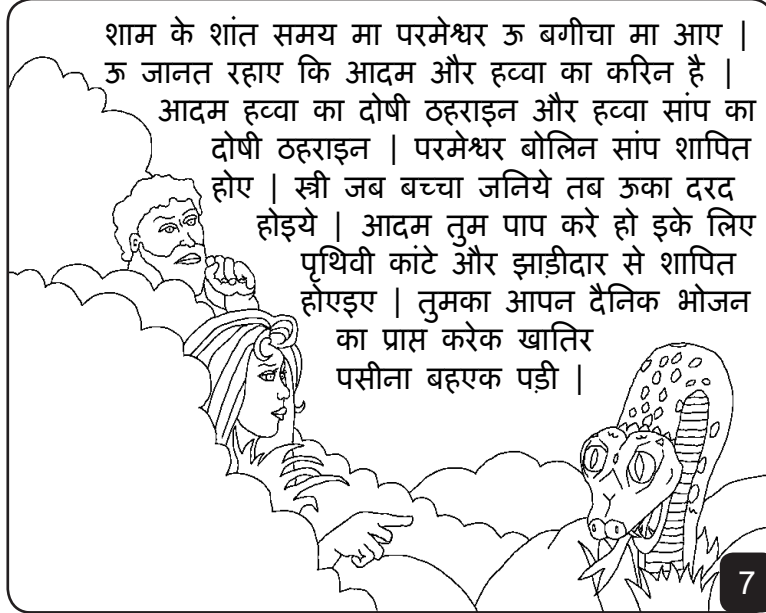 शाम के शांत समय मा परमेश्वर ऊ बगीचा मा आए |
ऊ जानत रहाए कि आदम और हव्वा का करिन है |
आदम हव्वा का दोषी ठहराइन और हव्वा सांप का
दोषी ठहराइन | परमेश्वर बोलिन सांप शापित
होए | स्त्री जब बच्चा जनिये तब ऊका दरद
होइये | आदम तुम पाप करे हो इके लिए
पृथिवी कांटे और झाड़ीदार से शापित
होएइए | तुमका आपन दैनिक भोजन
का प्राप्त करेक खातिर
पसीना बहएक पड़ी |
7